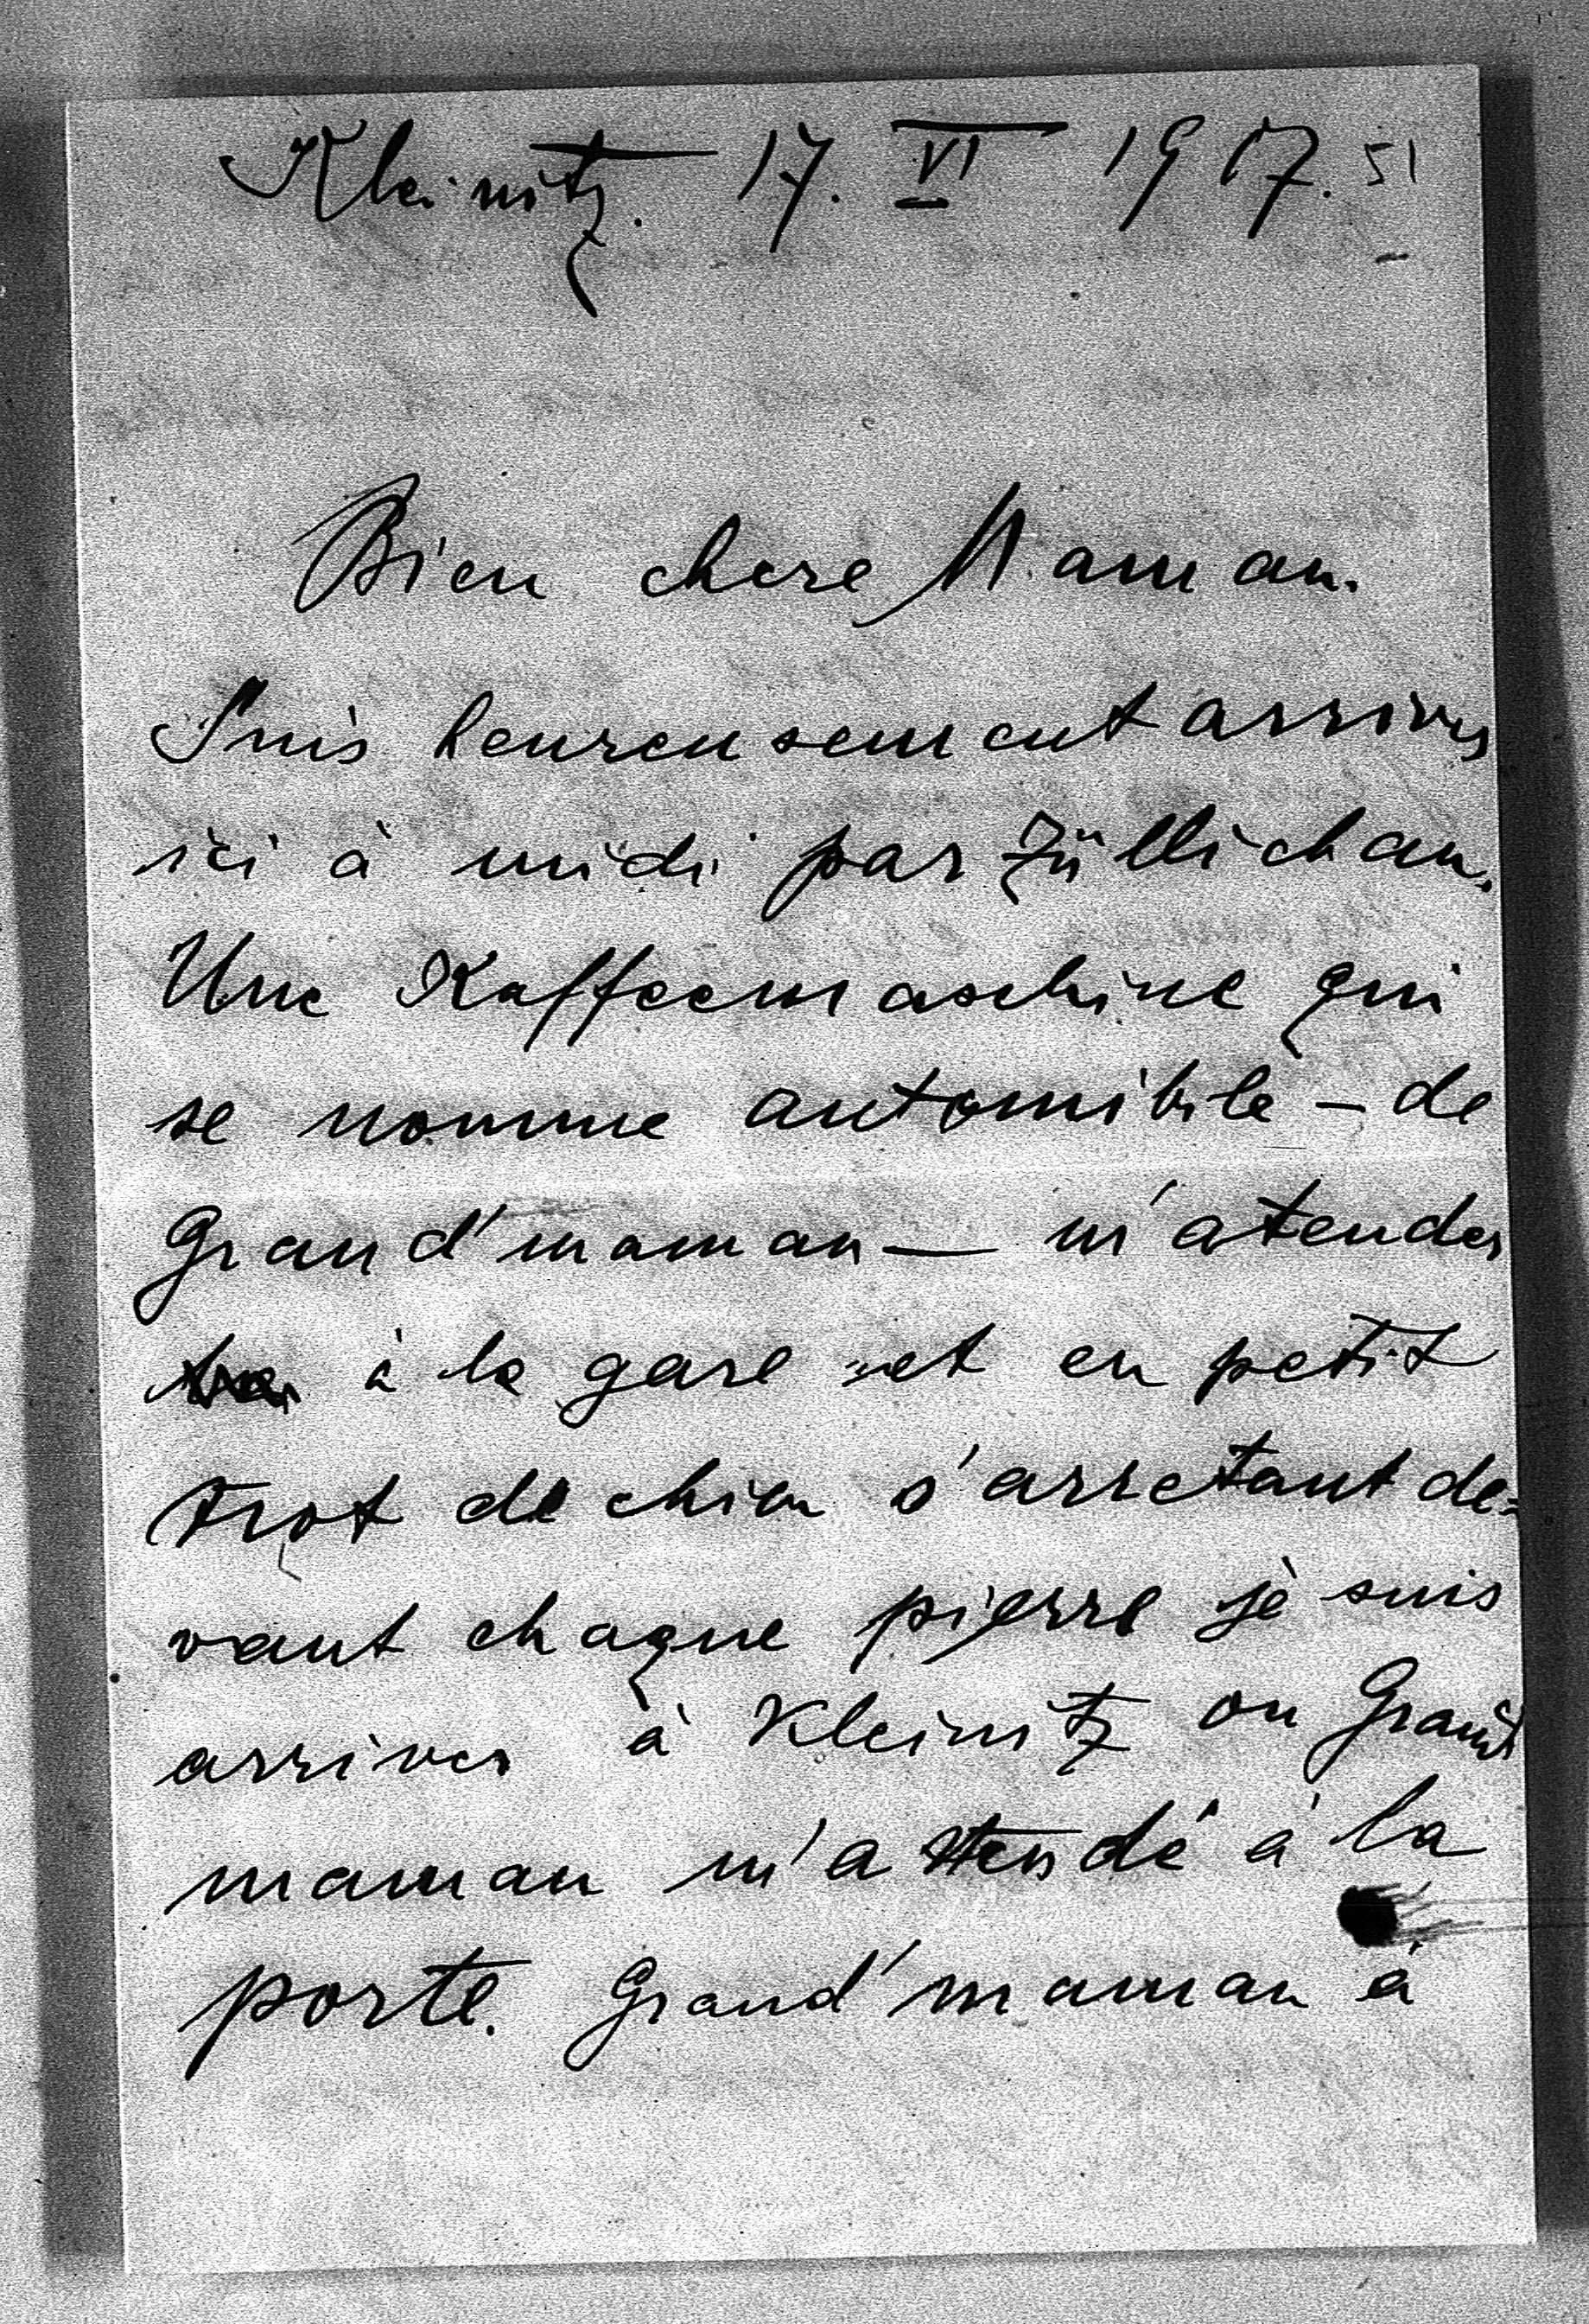 Kleinitz. 17. VI 1917. 51
Bien chere Maman.
Suis heureusement arriver
ici à midi par Züllichau.
Une Kaffeemaschine qui
se nomme automibile – de
Grand'maman — m'atender
à la gare et en petit
trot de chien s'arretant de=
vant chaque pierre je suis
arriver à Kleinitz ou Grand
maman m'a tendé à la
porte. Grand'maman à